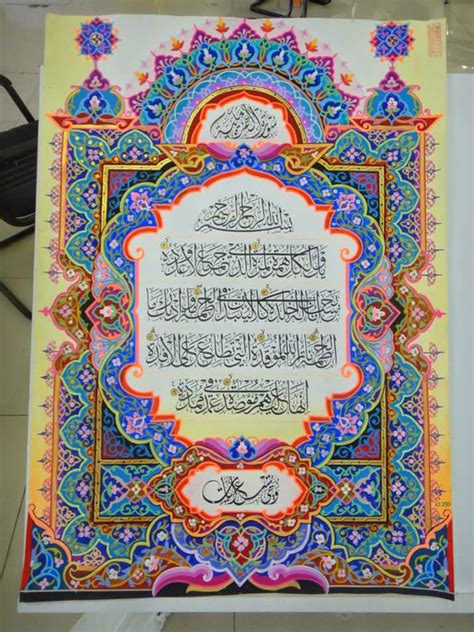 سورة الهمزة مكية
بسم الله الرحمن الرحيم
ويل لكل همزة لمزة الذي جمع مالا وعدده
يحسب أن ماله أخلده كلا لينبذن في الحطمة وما أدراك
ما الحطمة نار الله الموقدة التي تطلع على الأفئدة
إنها عليهم مؤصدة في عمد ممددة
وهي تسع آيات